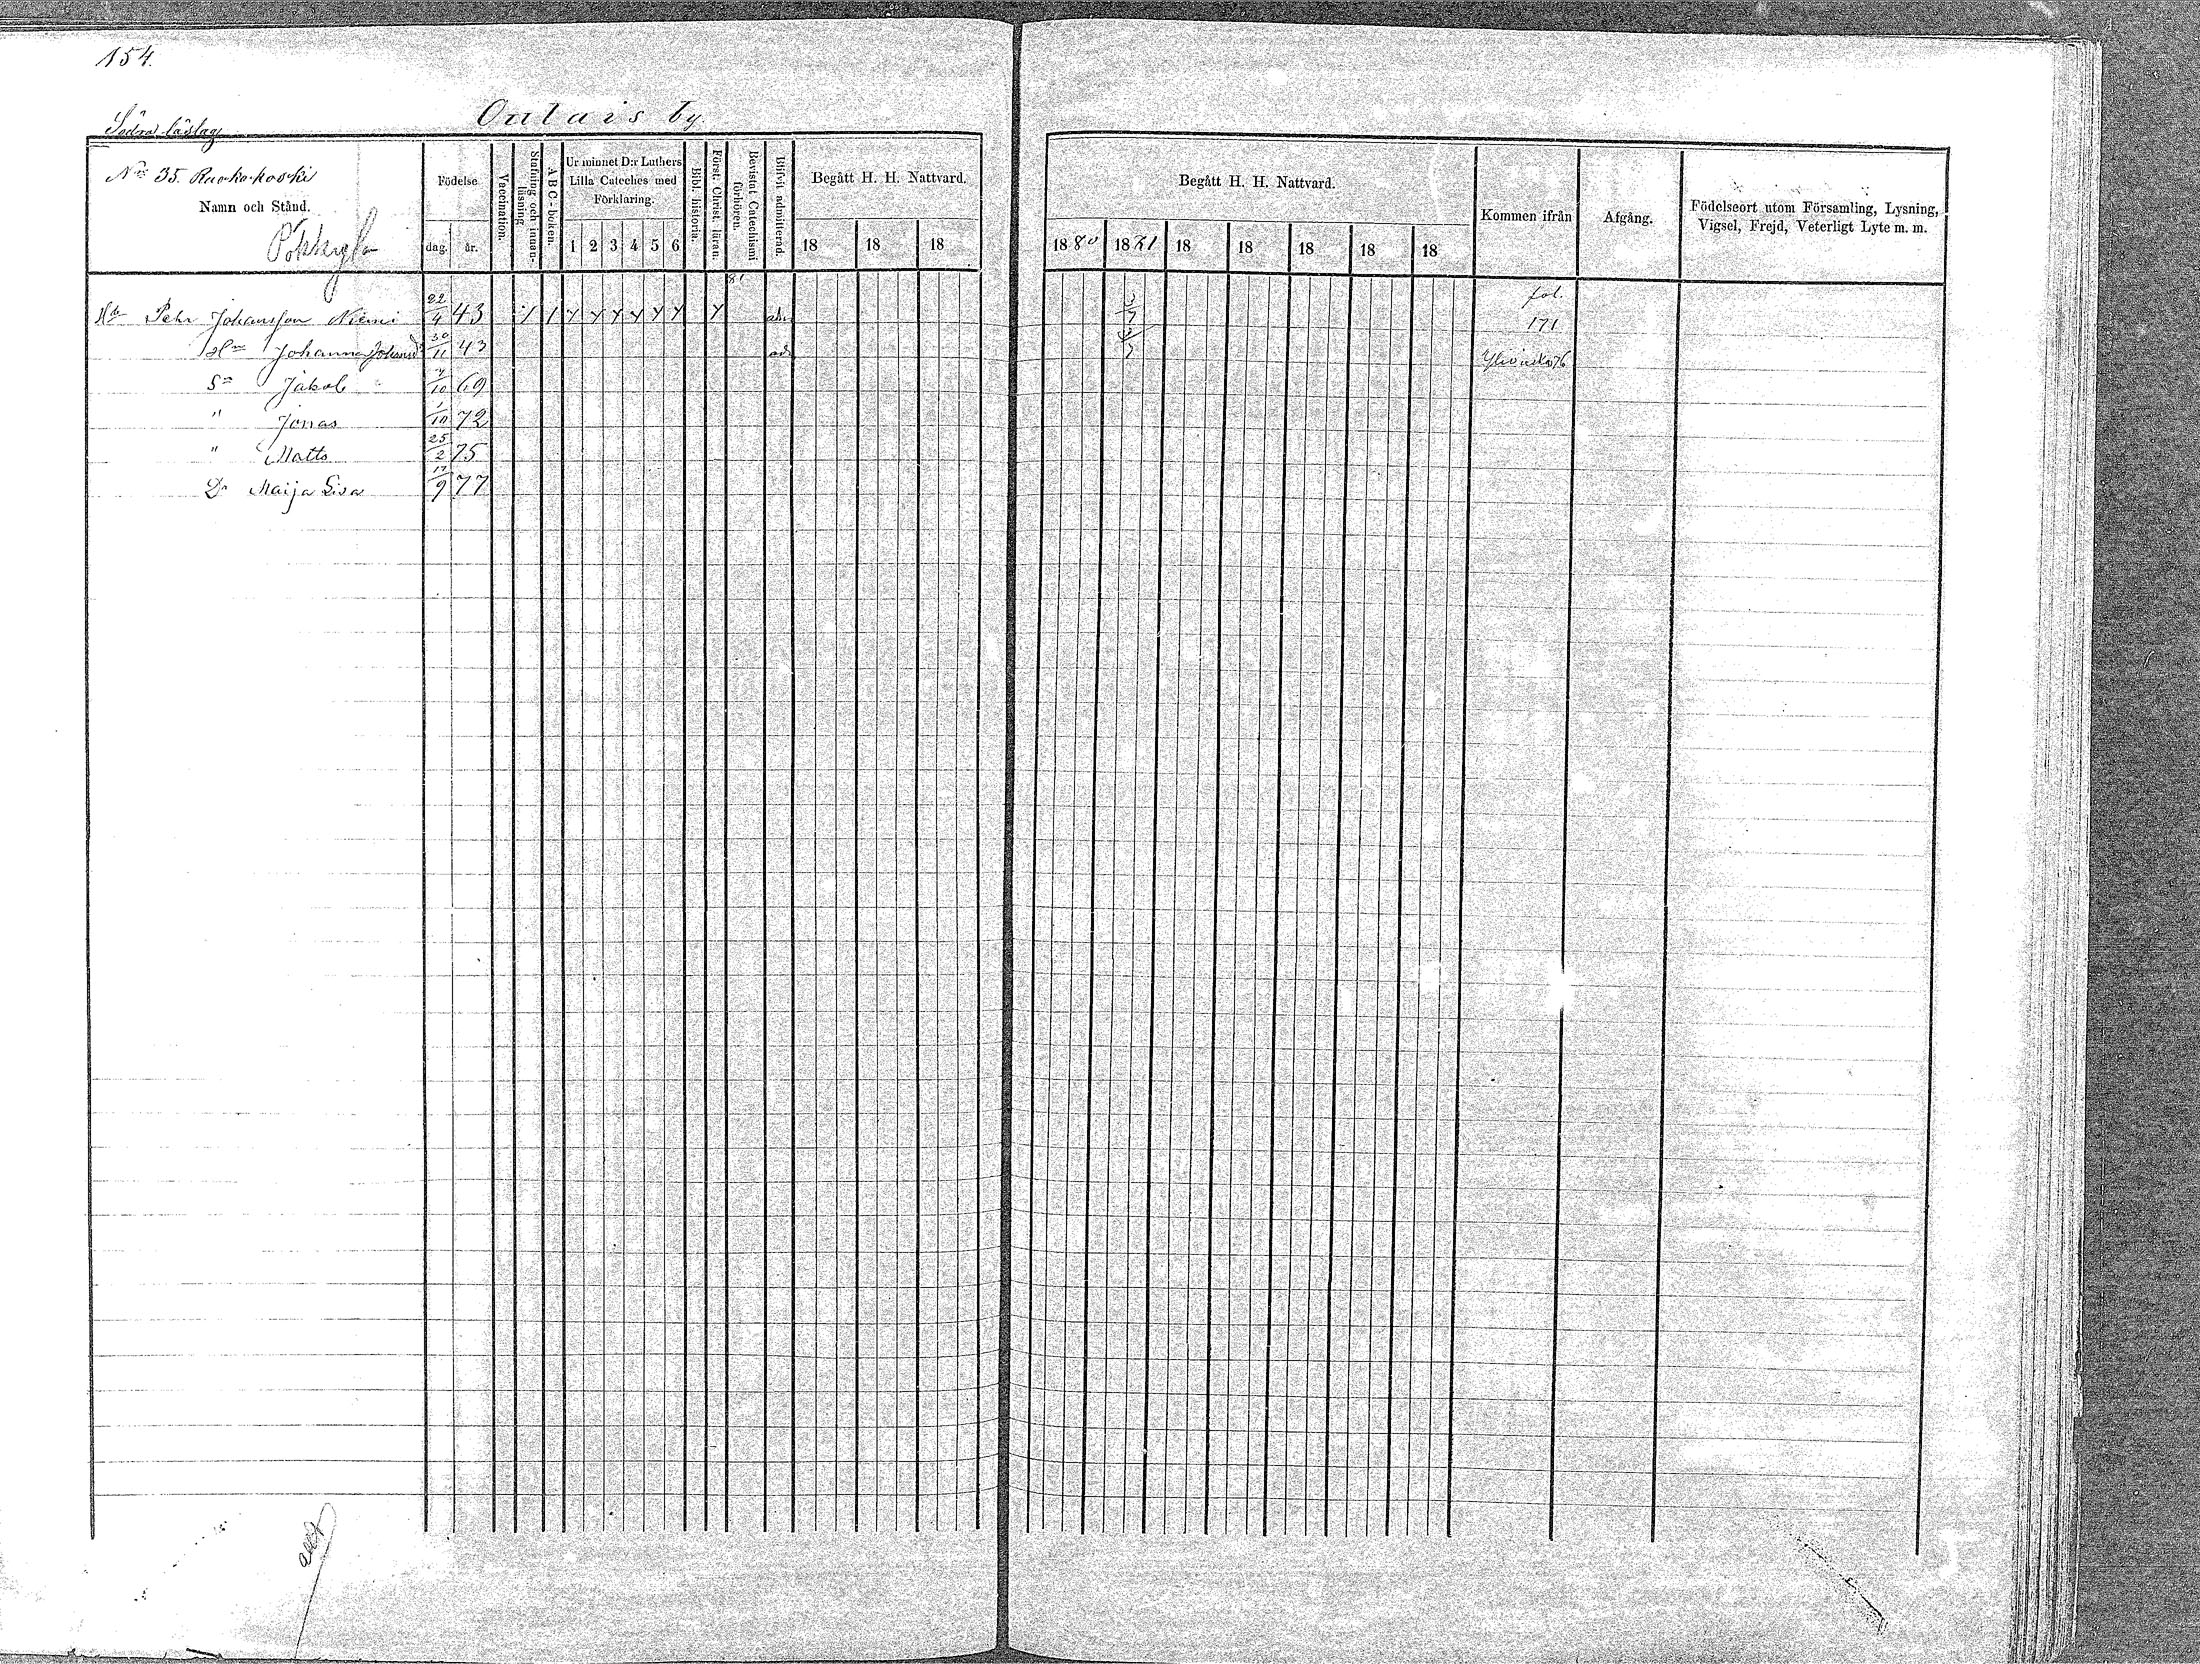 154.
Södra läslag
Ontais by.
Nro 35. Ruokokoski
Namn och Stånd.
Födelse
dag. år.
Vaccination.
Stafning och innan-läsning
ABC-boken.
Ur minnet D:r Luthers
Lilla Cateches med
Förklaring.
1 2 3 4 5 6
Bibl. historia.
Först. Christ. läran.
Bevistat Catechismi förhören.
Blifvit admitterad.
Begått H. H. Nattvard.
18 18 18
Begått H. H. Nattvard.
1880 1881 18 18 18 18 18
Kommen ifrån
Afgång.
Födelseort utom Församling, Lysning,
Vigsel, Frejd, Veterligt Lyte m. m.
81
Pehr Johansson Niemi 22/4 43 adm 3/7 fol. 171
Hu Johanna Johansd 30/11 43 3/7
Sn Jakob 10 69
" Jonas 1/10 72
" Matts 25/2 75
Dr Maija Lisa 17/9 77